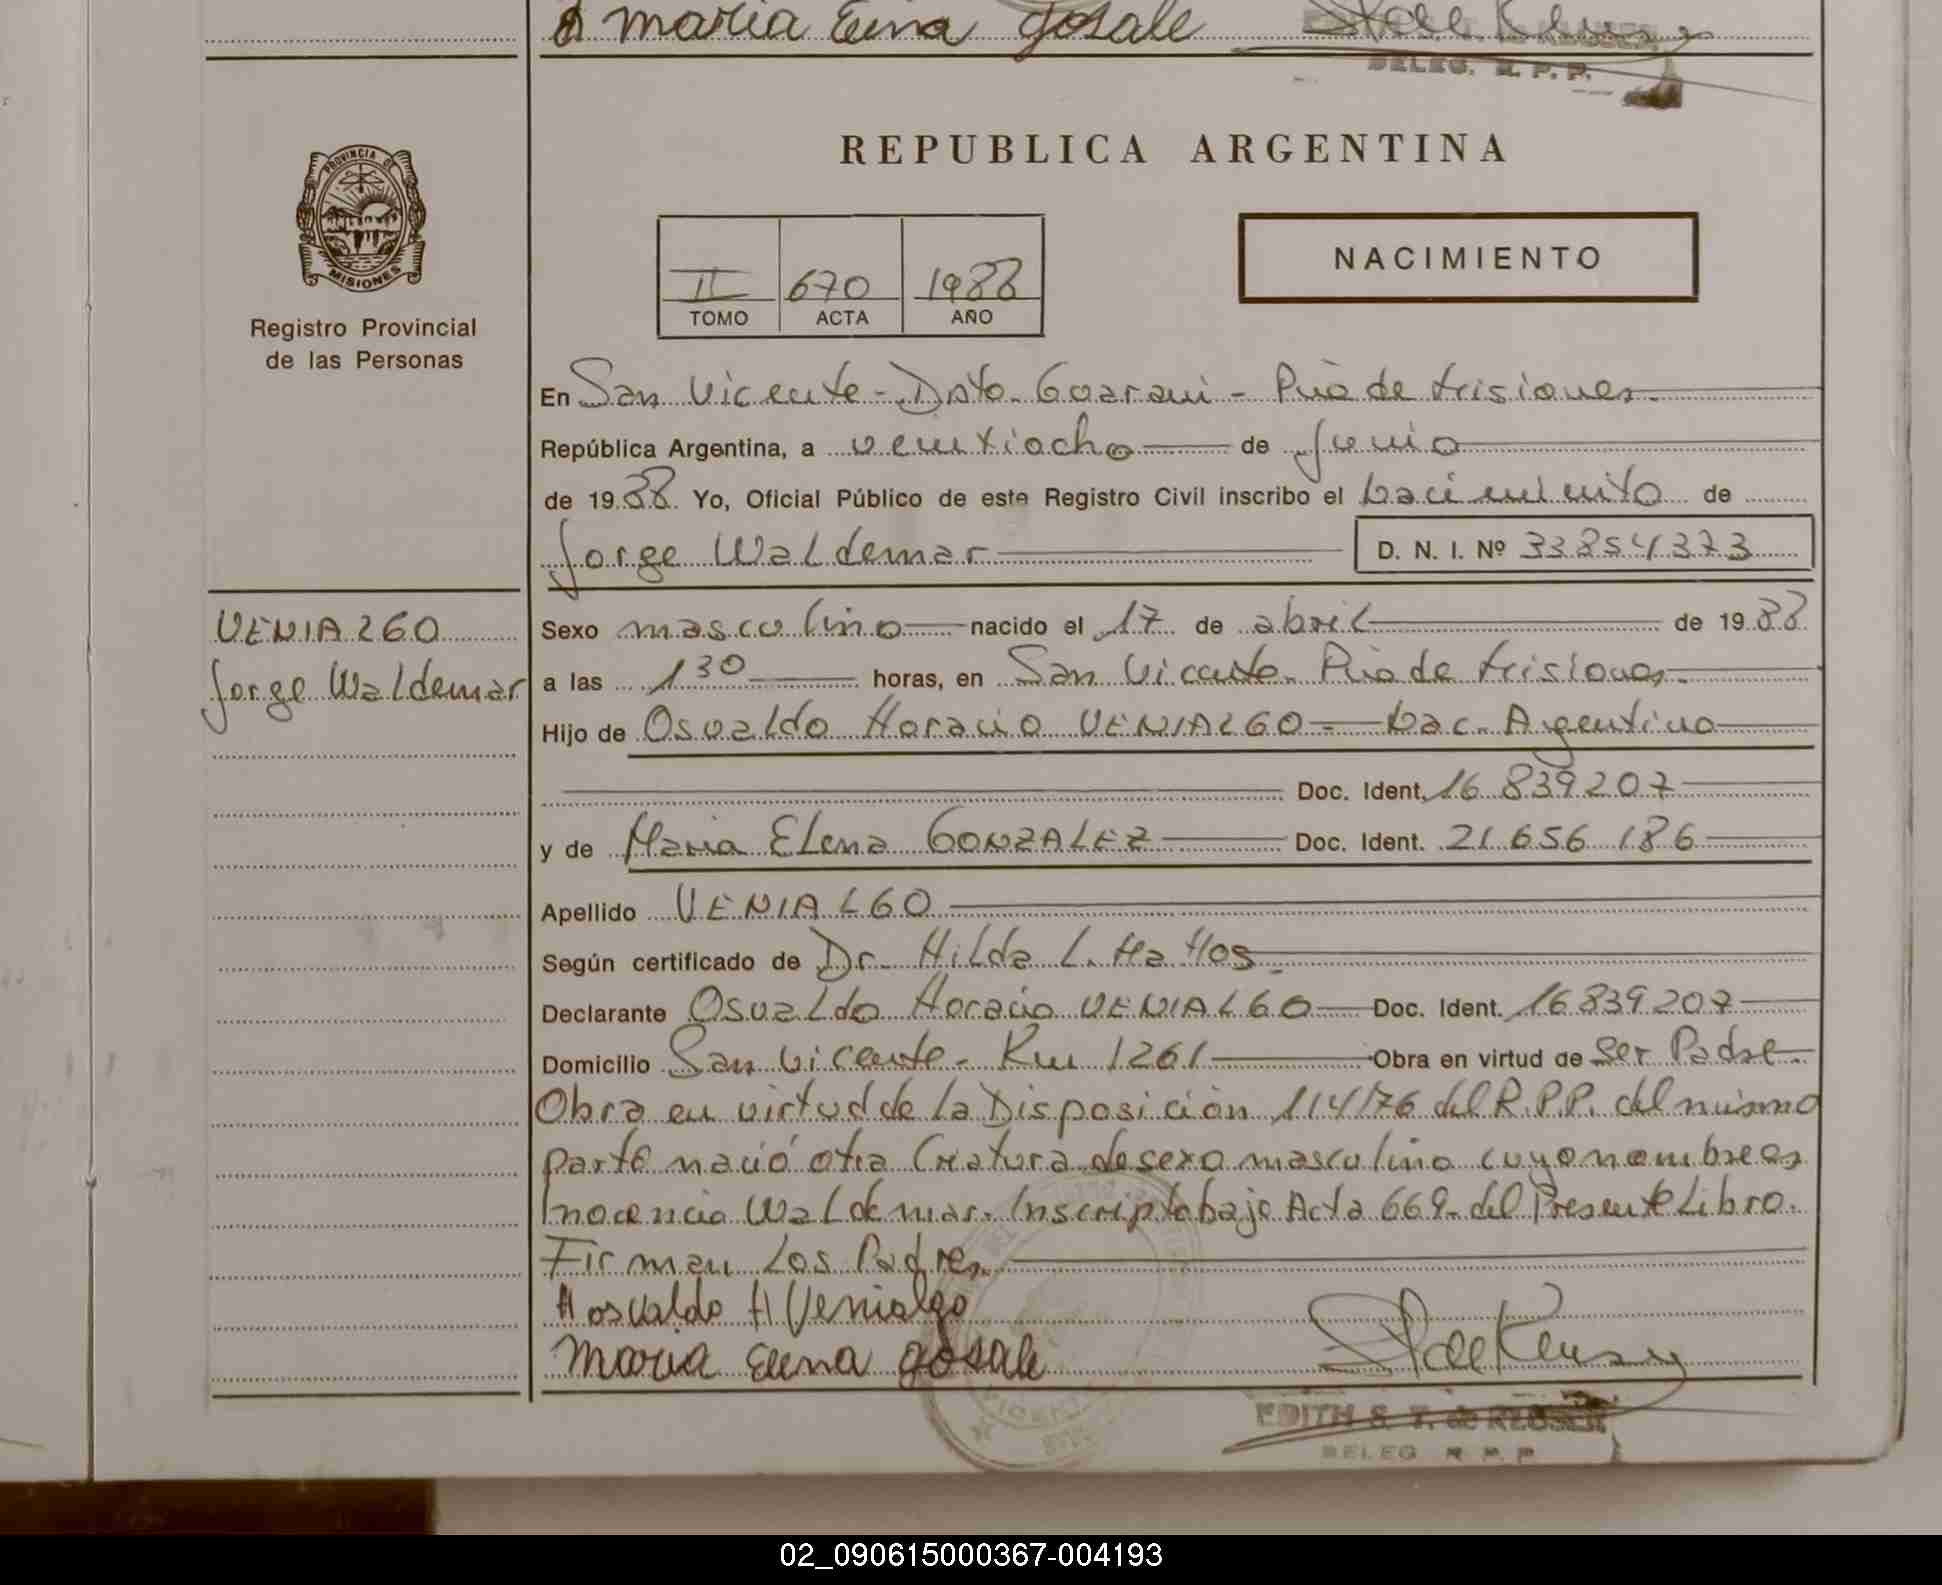 Maria Elena gosale
DELEG. R. P. P.
PROVINCIA DE
MISIONES
Registro Provincial
de las Personas
REPUBLICA ARGENTINA
NACIMIENTO
II 670 1988
TOMO ACTA AÑO
En San Vicente - Dpto. Guarani - Pcia de Misiones.
República Argentina, a veintiocho de Junio
de 1988 Yo, Oficial Público de este Registro Civil inscribo el Nacimiento de
Jorge Waldemar D. N. I. Nº 33854373
VENIALGO
Jorge Waldemar
Sexo masculino nacido el 17 de abril de 1988
a las 1 30 horas, en San Vicente. Pcia de Misiones.
Hijo de Osvaldo Horacio VENIALGO - Nac. Argentino
Doc. Ident. 16 839207
y de Maria Elena GONZALEZ Doc. Ident. 21 656 186
Apellido VENIALGO
Según certificado de Dr. Hilda L. Mattos.
Declarante Osvaldo Horacio VENIALGO Doc. Ident. 16839207
Domicilio San Vicente - Km 1261 Obra en virtud de Ser Padre.
Obra en virtud de la Disposición 114/76 del R.P.P. del mismo
parto nació otra Creatura de sexo masculino cuyo nombre es
Inocencio Waldemar. Inscripto bajo Acta 669 - del Presente Libro.
Firman Los Padres.
Hosvaldo H Venialgo
Maria Elena gosale
EDITH S. T. de REUSER
DELEG R. P. P.
02_090615000367-004193